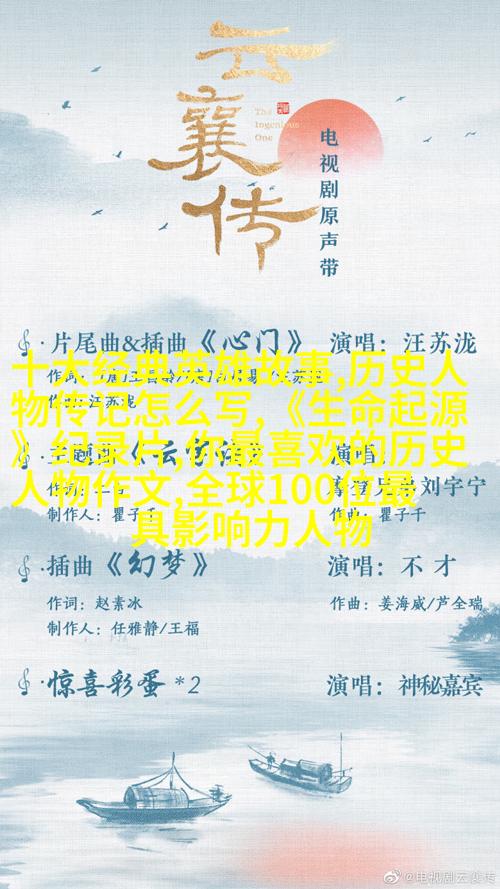 云襄传
The
Ingenious
One
电视剧原声带
片尾曲&插曲《心门》 演唱：汪苏泷
十大经典英雄故事,历史人
物传记怎么写,《生命起源
》纪录片,你最喜欢的历史
人物作文,全球100位最
具影响力人物
制作人：瞿子千
作曲：瞿子千
刘宇宁
插曲《幻梦》 演唱：不才
作词：赵素冰 作曲：姜海威/芦全瑞
制作人：任雅静/王福
惊喜彩蛋 *2 演唱：神秘嘉宾
@电视剧云襄传